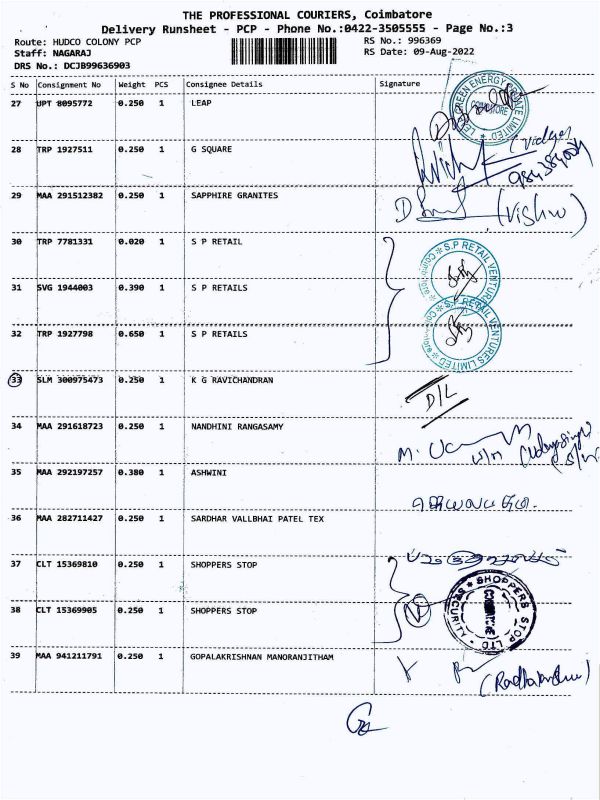 THE PROFESSIONAL COURIERS, Coimbatore
Delivery Runsheet - PCP - Phone No.:0422-3505555 - Page No.:3
Route: HUDCO COLONY PCP RS No.: 996369
Staff: NAGARAJ RS Date: 09-Aug-2022
DRS No.: DCJB99636903
S No Consignment No Weight PCS Consignee Details Signature
27 UPT 8095772 0.250 1 LEAP
28 TRP 1927511 0.250 1 G SQUARE
29 MAA 291512382 0.250 1 SAPPHIRE GRANITES (Vishw)
30 TRP 7781331 0.020 1 S P RETAIL
31 SVG 1944003 0.390 1 S P RETAILS S.P RETAIL VENTURES LIMITED Coimbatore
32 TRP 1927798 0.650 1 S P RETAILS S.P RETAIL VENTURES LIMITED Coimbatore
33 SLM 300975473 0.250 1 K G RAVICHANDRAN D/L
34 MAA 291618723 0.250 1 NANDHINI RANGASAMY
35 MAA 292197257 0.380 1 ASHWINI
36 MAA 282711427 0.250 1 SARDHAR VALLBHAI PATEL TEX
37 CLT 15369810 0.250 1 SHOPPERS STOP
38 CLT 15369905 0.250 1 SHOPPERS STOP SHOPPERS STOP LTD SECURITY
39 MAA 941211791 0.250 1 GOPALAKRISHNAN MANORANJITHAM